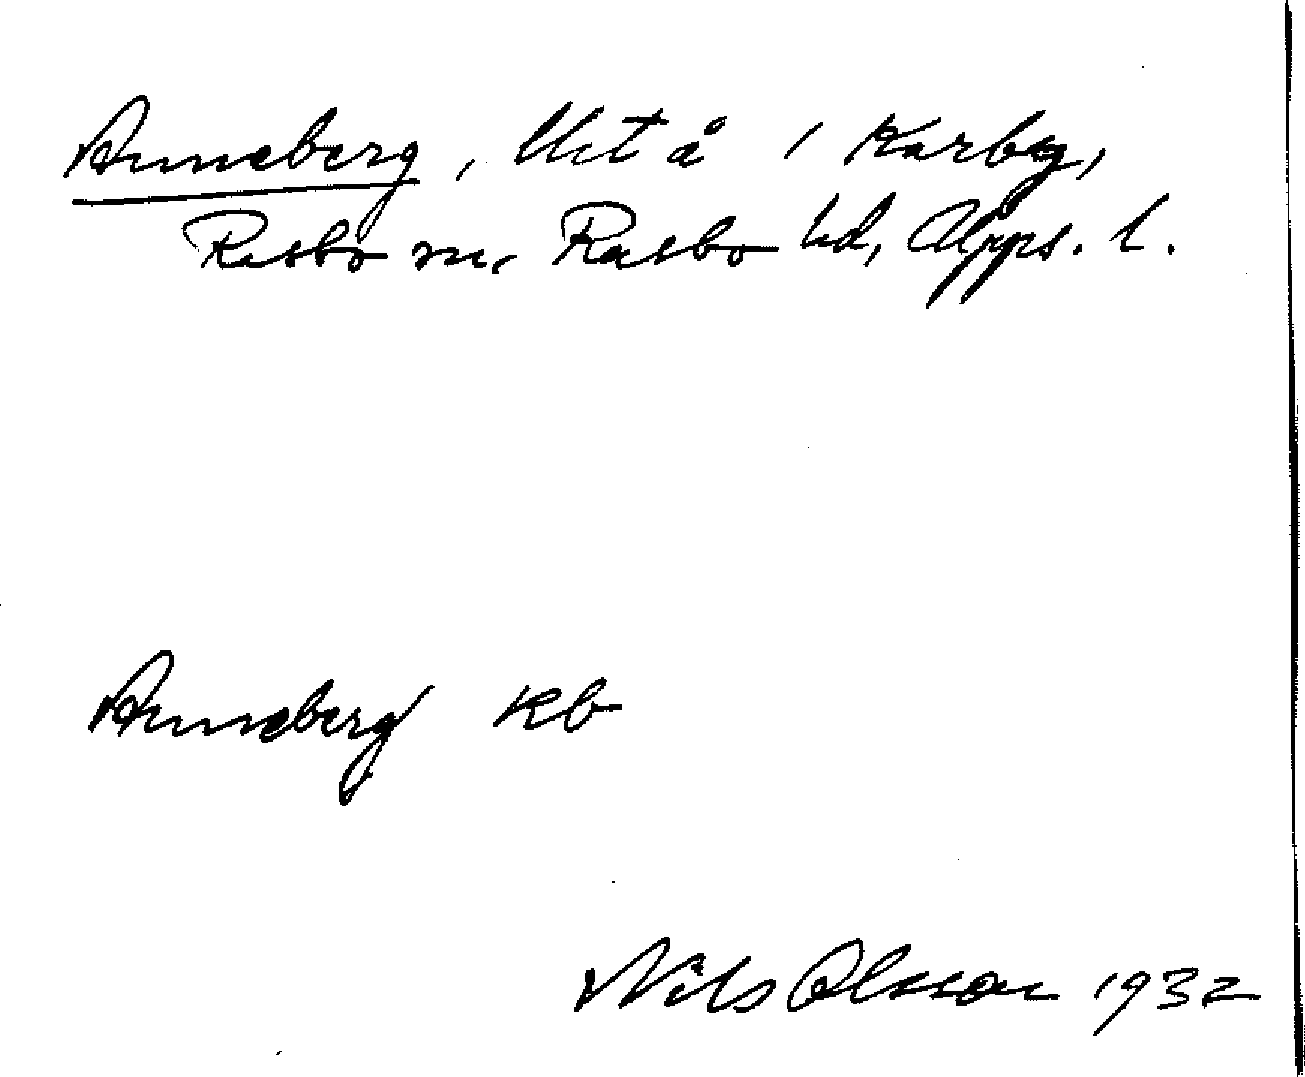 Anneberg, Uet å 1 Karby,
Rasbo sn, Rasbo hd, Upps. l.
Anneberg kb
Nils Olsson 1932